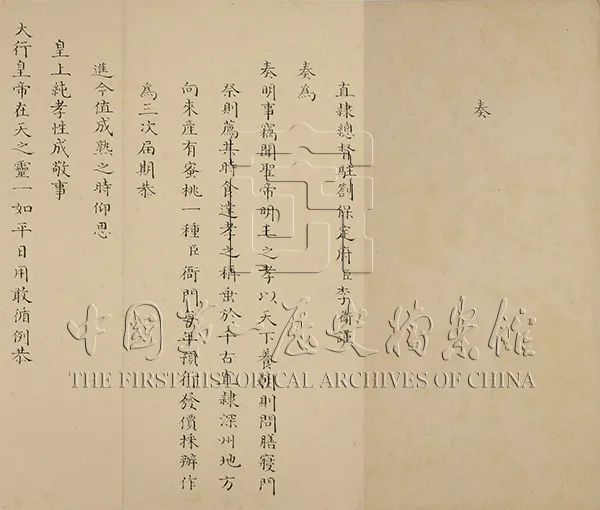 奏
直隸總督駐劄保定府臣李衛謹
奏為
奏明事竊聞聖帝明王之孝以天下養朝則問膳寢門
祭則薦其時食達孝之稱垂於千古直隸深州地方
向來產有蜜桃一種臣衙門每年預發價採辦作
為三次屆期恭
進今值成熟之時仰思
皇上純孝性成敬事
大行皇帝在天之靈一如平日用敢循例恭
中國第一歷史檔案館
THE FIRST HISTORICAL ARCHIVES OF CHINA